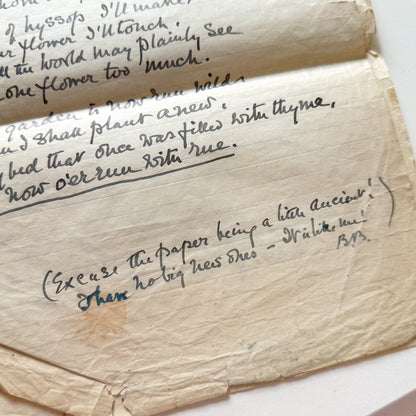 hom
of hyssop I'll make,
flower I'll touch
ll the world may plainly see
one flower too much.
garden is now run wild
I shall plant anew.
bed that once was filled with thyme,
now o'er run with rue.
(Excuse the paper being a little ancient!
I have no big new ones – It is like me!)
B.B.